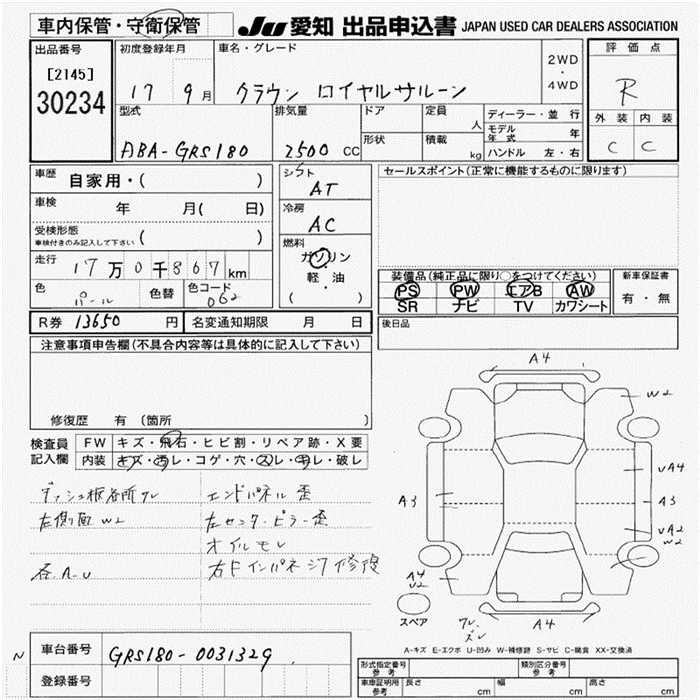 車内保管・守衛保管
JU 愛知 出品申込書 JAPAN USED CAR DEALERS ASSOCIATION
出品番号
[2145]
30234
初度登録年月
17 9月
車名・グレード
クラウン ロイヤルサルーン
2WD
・
4WD
評価点
R
外装 内装
C C
型式
ABA-GRS180
排気量
2500 CC
ドア
形状
定員
人
積載
kg
ディーラー・並行
モデル年式 年
ハンドル 左・右
車歴
自家用・( )
車検
年 月( 日)
受検形態
車検付きのみ記入して下さい ( )
走行
17万0千867km
色
パール
色替
色コード
062
シフト
AT
冷房
AC
燃料
ガソリン
・
軽・油
( )
セールスポイント(正常に機能するものに限ります)
装備品(純正品に限り○をつけてください)
PS PW エアB AW
SR ナビ TV カワシート
新車保証書
有・無
R券 13650 円
名変通知期限 月 日
後日品
注意事項申告欄(不具合内容等は具体的に記入して下さい)
修復歴 有 (箇所 )
検査員
記入欄
FW キズ・飛石・ヒビ割・リペア跡・X要
内装 キズ・汚レ・コゲ・穴・スレ・切レ・破レ
ダッシュ板各所ワレ
左側面W2
各A.U
エンドパネル歪
左センターピラー歪
オイルモレ
右Fインパネジワ修復
A4
W2
UA4
A3
A3
UA2
W2
A4
U2
スペア
ワレ
ズレ
A4
A-キズ E-エクボ U-凹み W-補修跡 S-サビ C-腐食 XX-交換済
N
車台番号
GRS180-0031329
登録番号
形式指定番号
参考
類別区分番号
参考
車庫証明用
参考
長さ cm 幅 cm 高さ cm